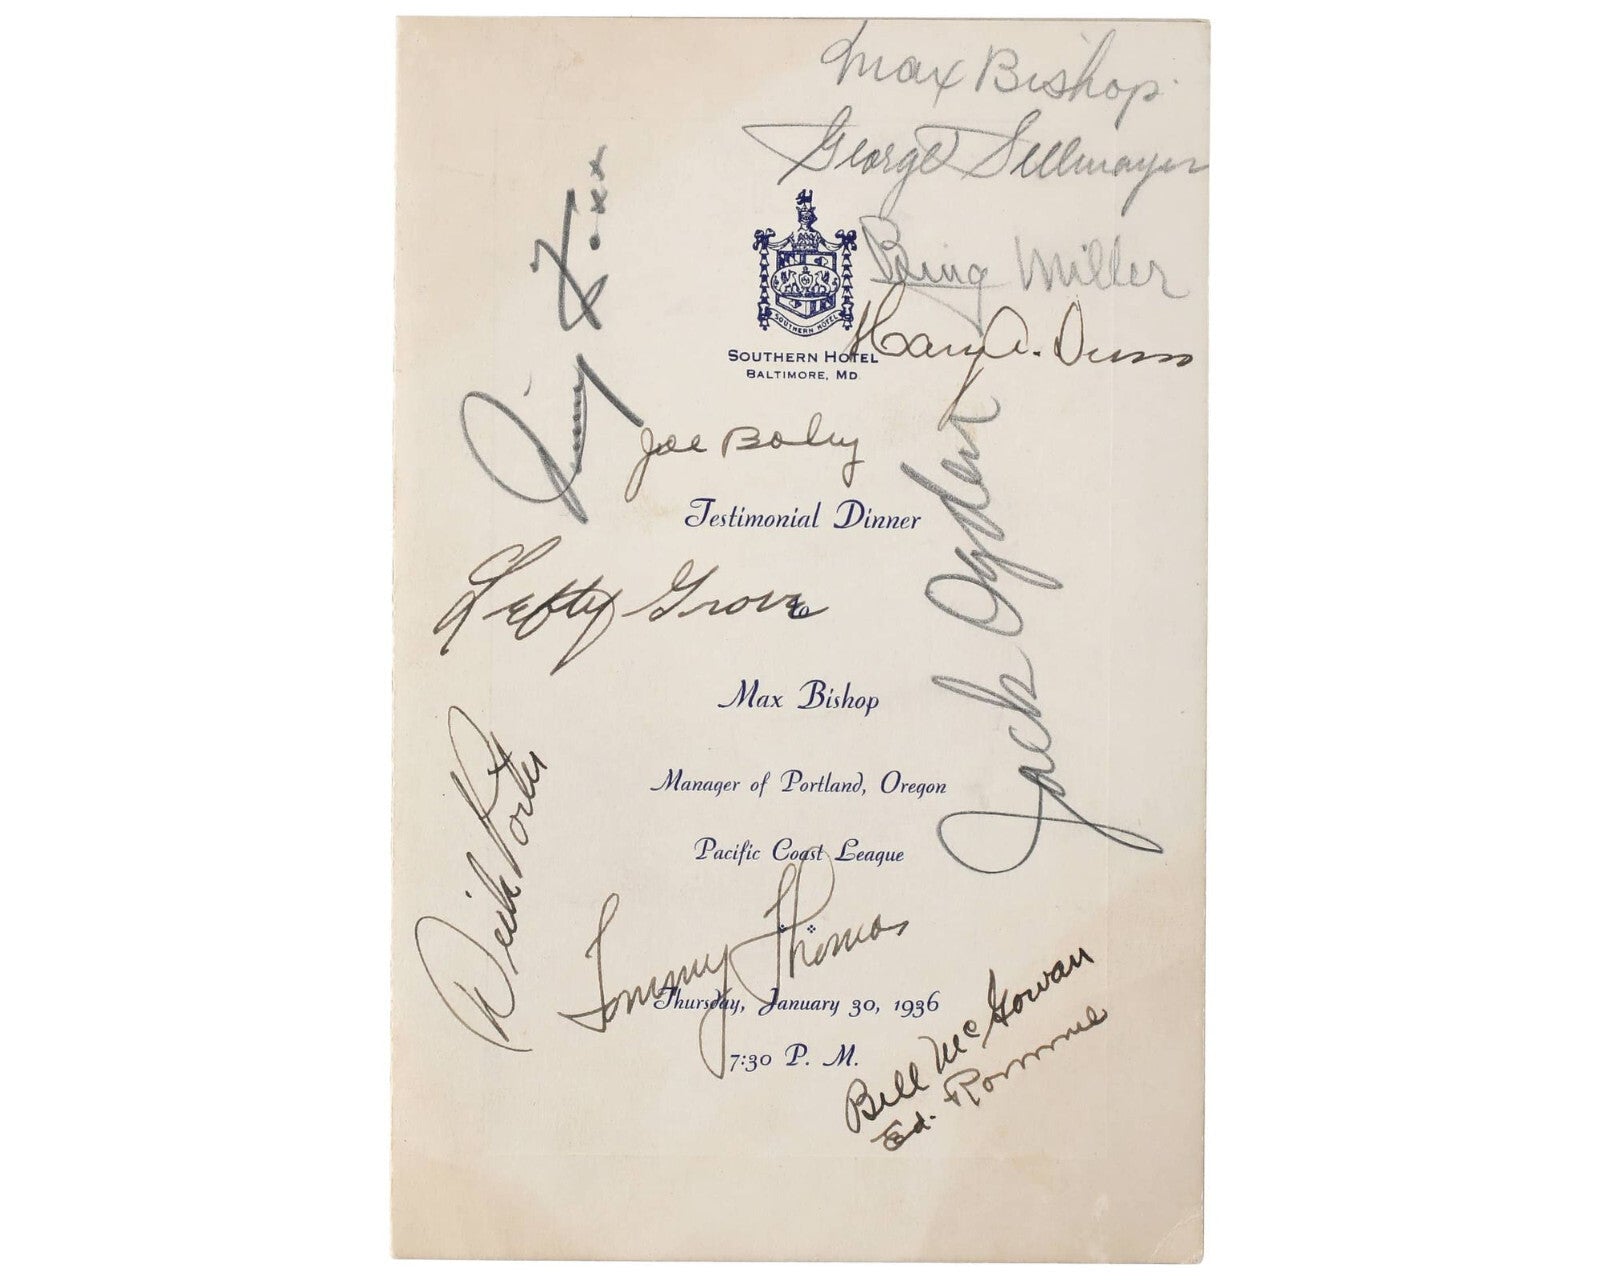 Max Bishop
George Sellmayer
Bing Miller
SOUTHERN HOTEL
Harry A. Dunn
Jimmy Foxx
SOUTHERN HOTEL
BALTIMORE, MD.
Joe Boley
Jack Ogden
Testimonial Dinner
Lefty Grove
to
Max Bishop
Manager of Portland, Oregon
Dick Porter
Pacific Coast League
Tommy Thomas
Thursday, January 30, 1936
7:30 P. M.
Bill McGowan
Ed. Rommel